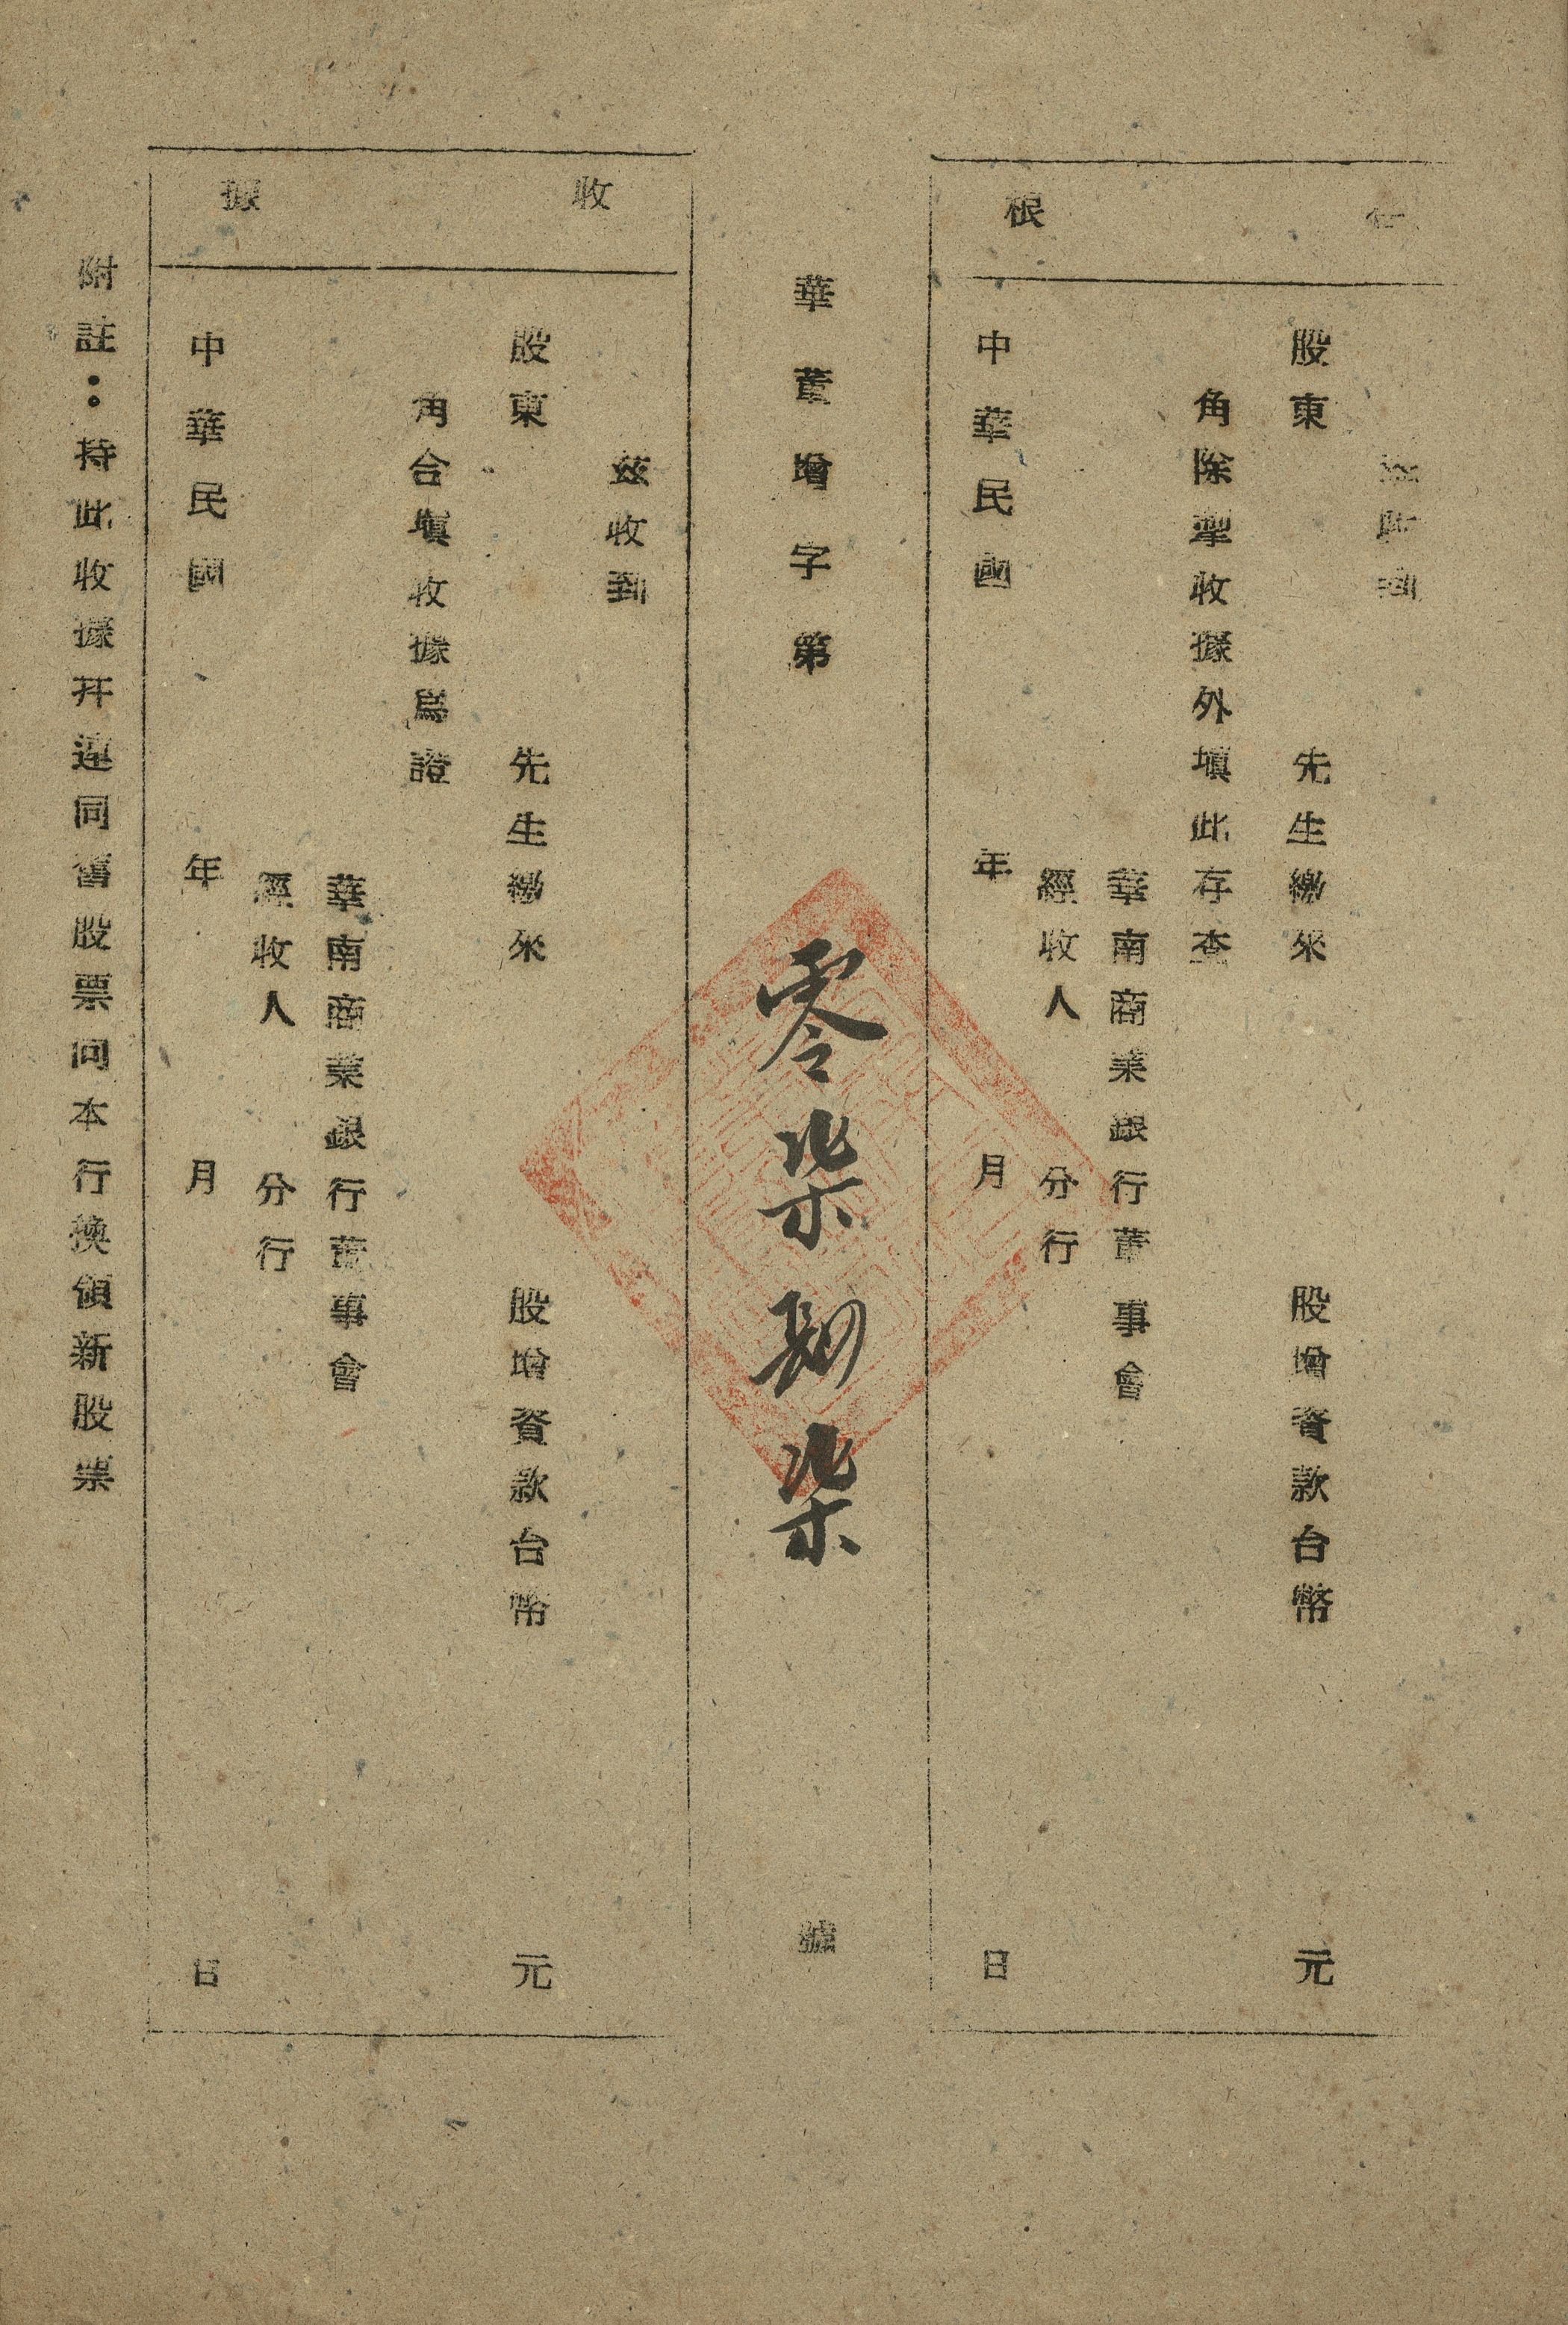 根
股東 先生繳來 股增資款台幣 元
角除掣收據外填此存查
華南商業銀行董事會
經收人 分行
中華民國 年 月 日
華董增字第 零柒肆柒 號
收據
茲收到
股東 先生繳來 股增資款台幣 元
角合填收據爲證
華南商業銀行董事會
經收人 分行
中華民國 年 月 日
附註：持此收據并連同舊股票向本行換領新股票